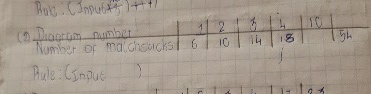 Rule: (Input
Diagram number | 1 | 2 | 3 | 4 | 10 |
Number of matchsticks | 6 | 10 | 14 | 18 | | 54
Rule: (Input )